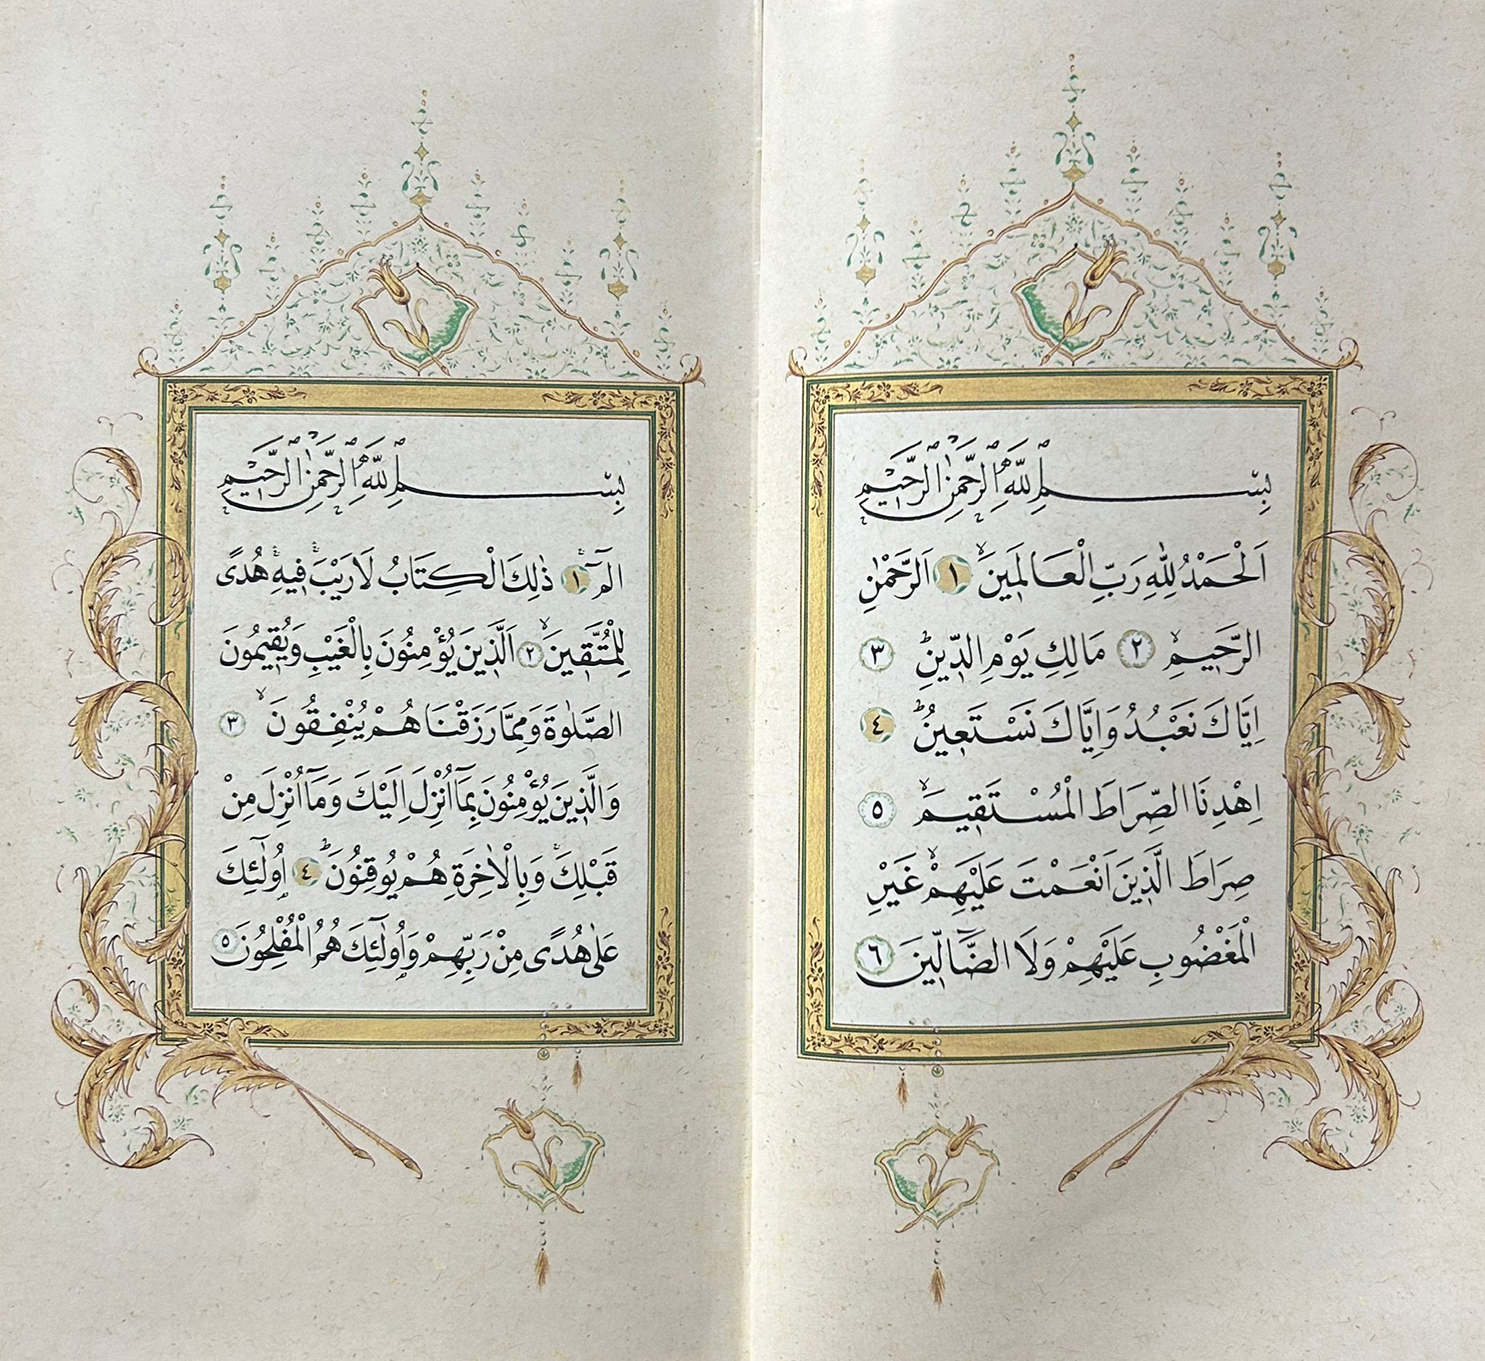 بِسْمِ اللّٰهِ الرَّحْمٰنِ الرَّحٖيمِ
اَلْحَمْدُ لِلّٰهِ رَبِّ الْعَالَمٖينَۙ ١ اَلرَّحْمٰنِ
الرَّحٖيمِۙ ٢ مَالِكِ يَوْمِ الدّٖينِؕ ٣
اِيَّاكَ نَعْبُدُ وَاِيَّاكَ نَسْتَعٖينُؕ ٤
اِهْدِنَا الصِّرَاطَ الْمُسْتَقٖيمَۙ ٥
صِرَاطَ الَّذٖينَ اَنْعَمْتَ عَلَيْهِمْۙ غَيْرِ
الْمَغْضُوبِ عَلَيْهِمْ وَلَا الضَّٓالّٖينَ ٦
بِسْمِ اللّٰهِ الرَّحْمٰنِ الرَّحٖيمِ
الٓمٓۚ ١ ذٰلِكَ الْكِتَابُ لَا رَيْبَۛ فٖيهِۛ هُدًى
لِلْمُتَّقٖينَۙ ٢ اَلَّذٖينَ يُؤْمِنُونَ بِالْغَيْبِ وَيُقٖيمُونَ
الصَّلٰوةَ وَمِمَّا رَزَقْنَاهُمْ يُنْفِقُونَۙ ٣
وَالَّذٖينَ يُؤْمِنُونَ بِمَٓا اُنْزِلَ اِلَيْكَ وَمَٓا اُنْزِلَ مِنْ
قَبْلِكَۚ وَبِالْاٰخِرَةِ هُمْ يُوقِنُونَؕ ٤ اُو۬لٰٓئِكَ
عَلٰى هُدًى مِنْ رَبِّهِمْ وَاُو۬لٰٓئِكَ هُمُ الْمُفْلِحُونَ ٥